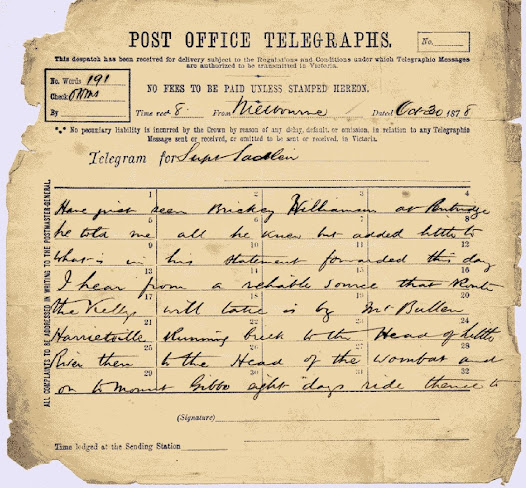 POST OFFICE TELEGRAPHS.
No.
This despatch has been received for delivery subject to the Regulations and Conditions under which Telegraphic Messages
are authorized to be transmitted in Victoria.
No. Words 191
Check
By
NO FEES TO BE PAID UNLESS STAMPED HEREON.
Time recd 8. From Melbourne Dated Oct 30 1878
*** No pecuniary liability is incurred by the Crown by reason of any delay, default, or omission, in relation to any Telegraphic
Message sent or received, or omitted to be sent or received, in Victoria.
Telegram for Supt Sadleir
ALL COMPLAINTS TO BE ADDRESSED IN WRITING TO THE POSTMASTER-GENERAL.
1 2 3 4
Have just seen Brickey Williamson at Pentridge
5 6 7 8
he told me all he knew but added little to
9 10 11 12
what is in his statement forwarded this day
13 14 15 16
I hear from a reliable source that Route
17 18 19 20
the Kellys will take is by Mt Buller
21 22 23 24
Harrietville Running Creek to the Head of Little
25 26 27 28
River then to the Head of the Wombat and
29 30 31 32
on to Mount Gibbo eight days ride thence to
(Signature)
Time lodged at the Sending Station